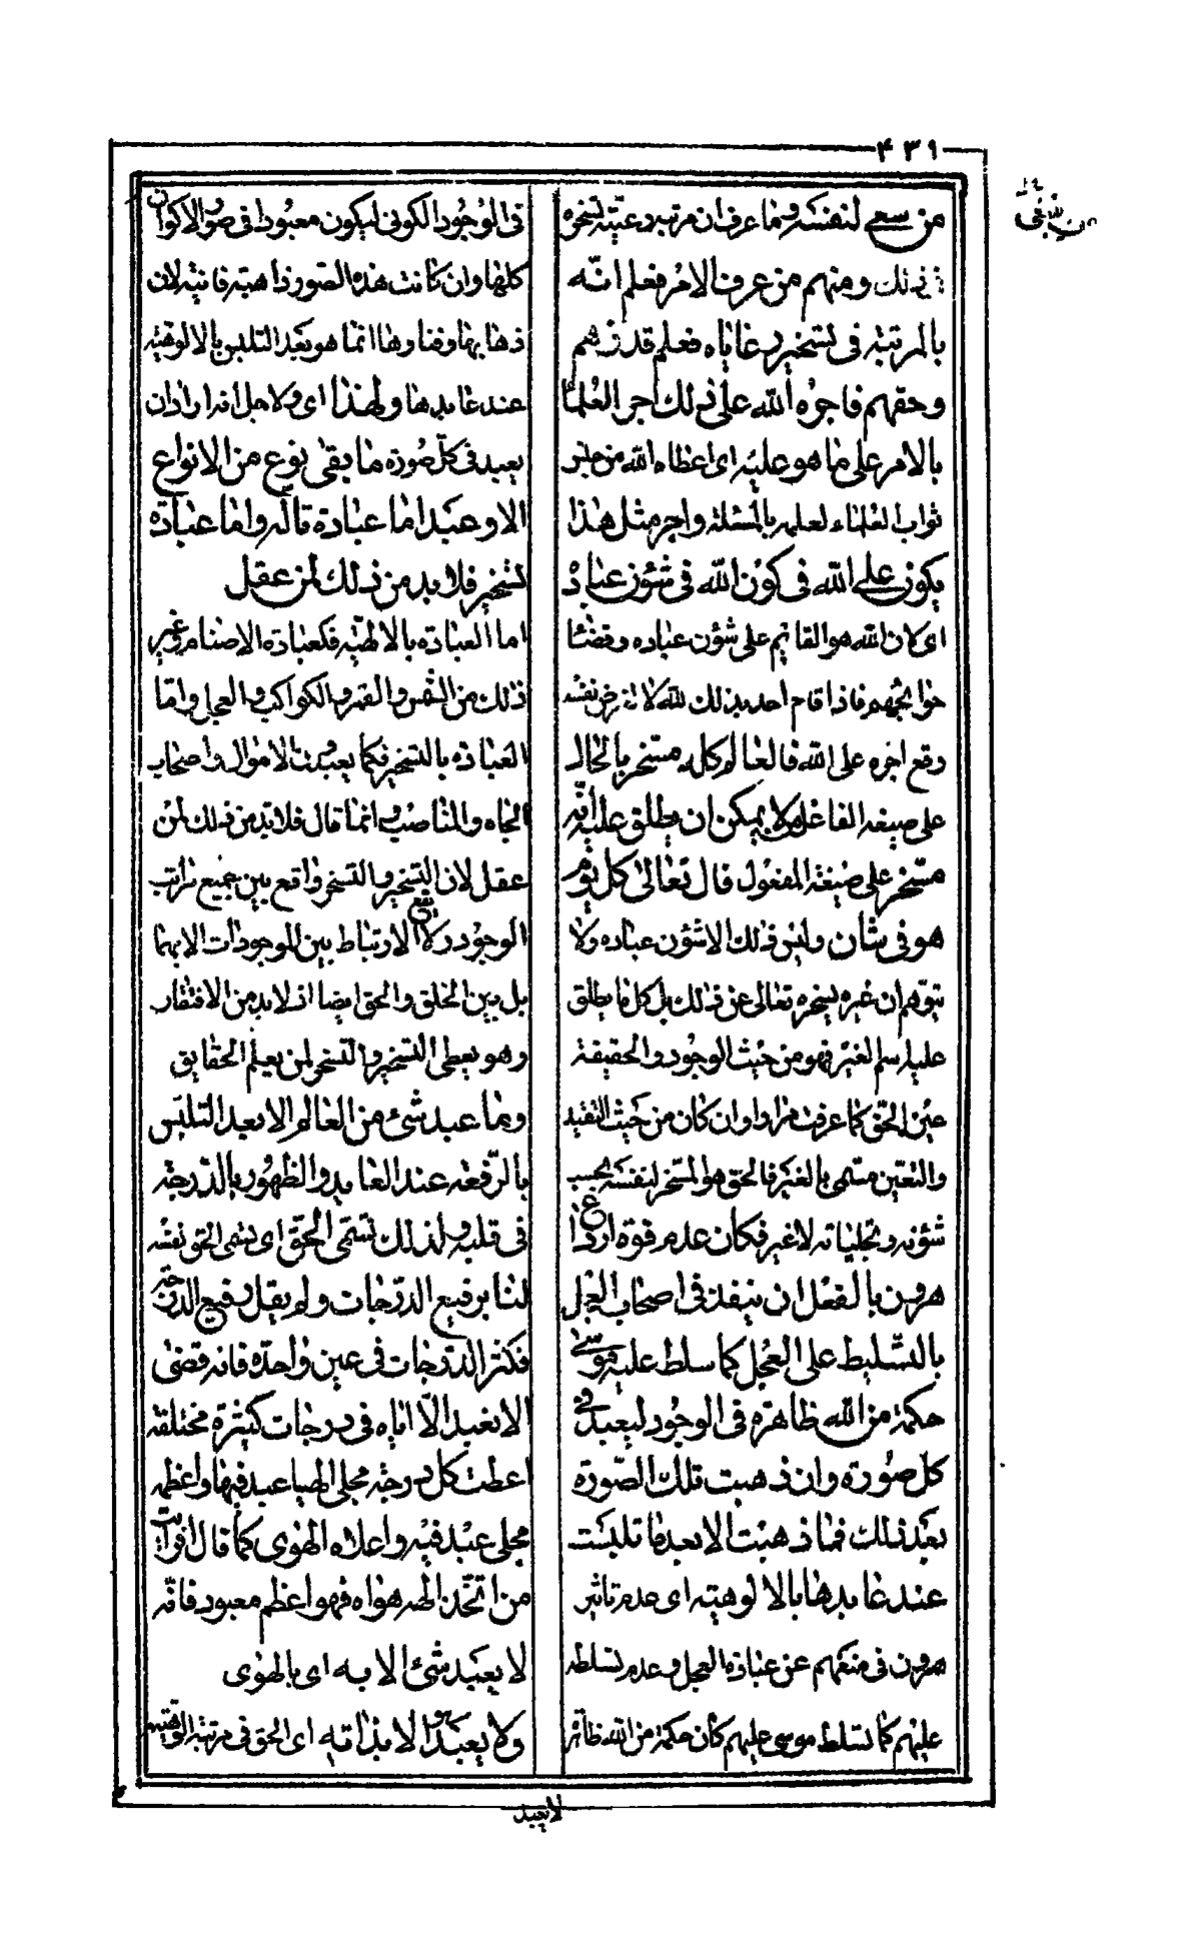 ٤٣٩
من سعى لنفسه وما عرف ان مرتبة رعيته تسخره
في ذلك ومنهم من عرف الامر فعلم انه
بالمرتبة فى تسخير رعاياه فعلم قدرهم
وحقهم فاجره الله على ذلك اجر العلماء
بالامر على ما هو عليه اى اعطاه الله من جنس
ثواب العلماء لعلمه بالمسئلة واجر مثل هذا
يكون على الله فى كون الله فى شؤن عباده
اى كان الله هو القائم على شؤن عباده وقضاء
حوائجهم فاذا قام احد بذلك لله لا لغرض نفسه
وقع اجره على الله فالعالم كله مسخر بالحال
على صيغه الفاعل من لا يمكن ان يطلق عليه انه
مسخر على صيغة المفعول قال تعالى كل يوم
هو فى شان وليس ذلك الا شؤن عباده ولا
يتوهم ان غيره يسخره تعالى عن ذلك بل كل ما يطلق
عليه اسم الغير فهو من حيث الوجود والحقيقة
عين الحق كما عرفت مرارا وان كان من حيث التقيد
والتعين مسمى بالغير فالحق هو المسخر لنفسه بحسب
شؤنه وتجلياته لا غير فكان عدم قوة ارداع
هرون بالفعل ان ينفذ فى اصحاب العجل
بالتسليط على العجل كما سلط عليه موسى
حكمة من الله ظاهرة فى الوجود ليعبد فى
كل صورة وان ذهبت تلك الصورة
بعد ذلك فما ذهبت الا بعد ما تلبست
عند عابدها بالالوهية اى عدم تاثير
هرون فى منعهم عن عبادة العجل وعدم تسلطه
عليهم كما تسلط موسى عليهم كان حكمة من الله ظاهر
فى الوجود الكونى ليكون معبودا فى صور الاكوان
كلها وان كانت هذه الصور ذاهبة فانية لان
ذهابها وفناوها انما هو بعد التلبس بالالوهية
عند عابدها ولهذا اى ولاجل انه اراد ان
يعبد فى كل صورة ما بقى نوع من الانواع
الا وعبد اما عبادة تاله واما عبادة
تسخير فلا بد من ذلك لمن عقل
اما العبادة بالالهية فكعبادة الاصنام وغير
ذلك من الشمس والقمر والكواكب والعجل واما
العبادة بالتسخير فكما يعبدون الاموال واصحاب
الجاه والمناصب وانما قال فلا بد من ذلك لمن
عقل لان التسخير والتسخر واقع بين جميع مراتب
الوجود ولا يقع الارتباط بين الموجودات الا بهما
بل بين الخلق والحق ايضا اذ لا بد من الافتقار
وهو يعطى التسخير والتسخر لمن يعلم الحقايق
وما عبد شئ من العالم الا بعد التلبس
بالرفعة عند العابد والظهور بالدرجة
فى قلبه ولذلك تسمى الحق اى يسمى الحق نفسه
لنا برفيع الدرجات ولم يقل رفيع الدرجة
فكثر الدرجات فى عين واحدة فانه قضى
الا نعبد الا اياه فى درجات كثيرة مختلفة
اعطت كل درجة مجلى الهيا عبد فيها واعظم
مجلى عبد فيه واعلاه الهوى كما قال افرايت
من اتخذ الهه هواه فهو اعظم معبود فانه
لا يعبد شئ الا به اى بالهوى
ولا يعبد هو الا بذاته اى الحق فى مرتبة الوهيته
لا يعبد